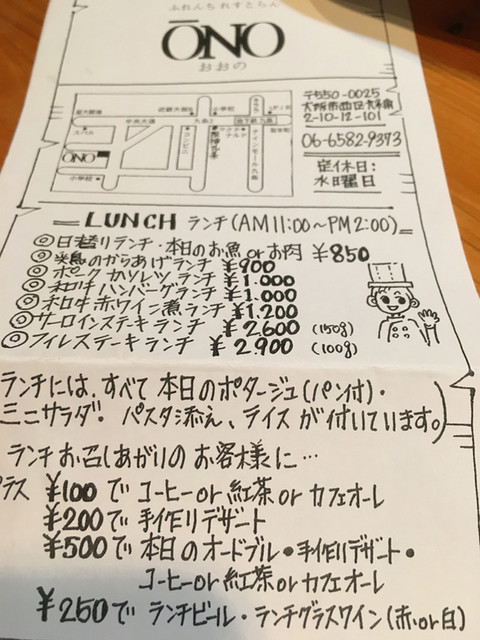 ふれんち れすとらん
ŌNO
おおの
〒550-0025
大阪市西区九条南
2-10-12-101
06-6582-9373
定休日:
水曜日
中央大通
九条
小学校
コンビニ
マクドナルド
地下鉄九条
ナインモール九条
スバル
ŌNO
小学校
LUNCH ランチ(AM11:00～PM2:00)
◎日替りランチ・本日のお魚orお肉 ¥850
◎鶏のからあげランチ ¥900
◎ポークカツレツランチ ¥1.000
◎和牛ハンバーグランチ ¥1.000
◎和牛赤ワイン煮ランチ ¥1.200
◎サーロインステーキランチ ¥2600 (150g)
◎フィレステーキランチ ¥2.900 (100g)
ランチには、すべて本日のポタージュ(パン付)・
ミニサラダ・パスタ添え、ライスが付いています。
ランチお召しあがりのお客様に…
プラス ¥100で コーヒーor紅茶orカフェオーレ
¥200で 手作りデザート
¥500で 本日のオードブル・手作りデザート・
コーヒーor紅茶orカフェオーレ
¥250で ランチビール・ランチグラスワイン(赤or白)